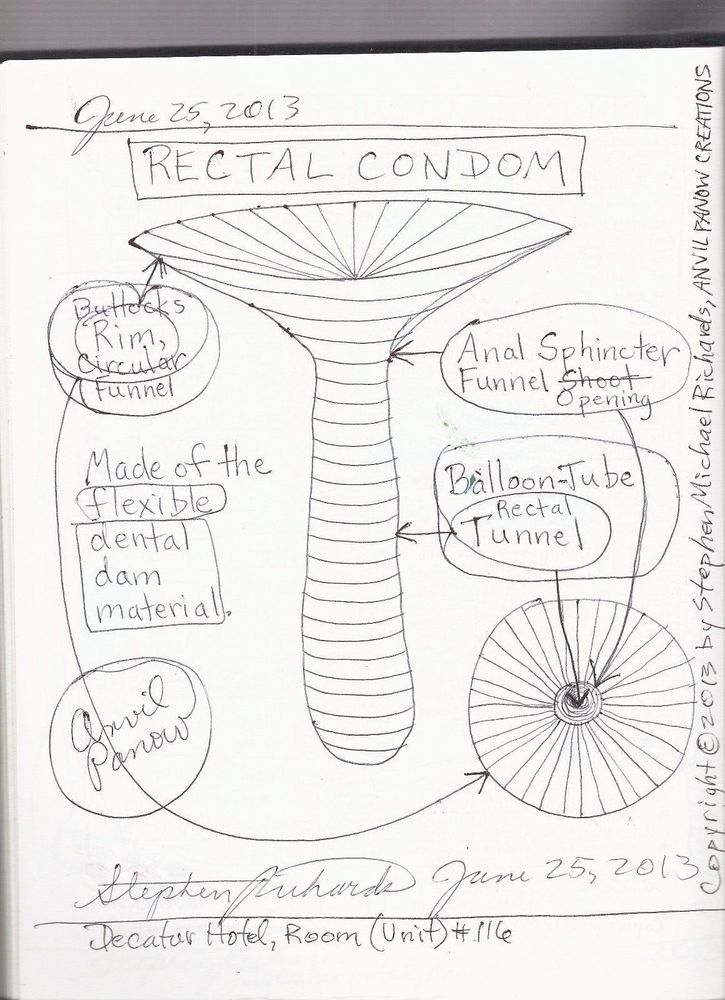 June 25, 2013
RECTAL CONDOM
Buttocks
Rim,
Circular
Funnel
Anal Sphincter
Funnel Shoot
Opening
Made of the
flexible
dental
dam
material.
Balloon-Tube
Rectal
Tunnel
Anvil
Panow
Stephen Richards June 25, 2013
Decatur Hotel, Room (Unit) #116
Copyright © 2013 by Stephen Michael Richards, ANVIL PANOW CREATIONS